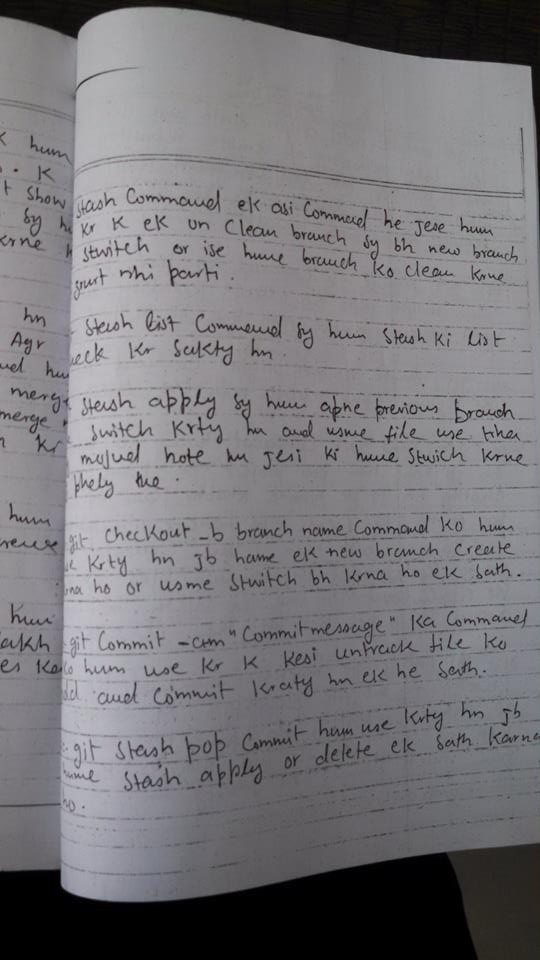 k hum
. K
t show
sy h
krne
hn
Agr
ud hu
merge
merge
kr
hum
hum
akh
es ko
Stash Command ek asi Command he jese hum
Kr K ek un clean branch sy bh new branch
Stwitch or ise hume branch ko clean krne
zrurt nhi parti.
- Stash list Command sy hum Stash Ki list
eck Kr Sakty hn.
Stash apply sy hum apne previous branch
Switch Krty hn and usme file use tiha
mojud hote hn jesi ki hume Stwich Krne
phely the.
git checkout -b branch name Command ko hum
e Krty hn jb hame ek new branch create
rna ho or usme Stwitch bh Krna ho ek Sath.
-git Commit -am "Commit message" Ka Command
ko hum use Kr K kesi untrack file ko
dd and Commit Kraty hn ek he Sath.
:- git Stash pop Commit hum use Krty hn jb
hume Stash apply or delete ek Sath Karna
ho.